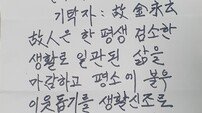 기탁자: 故 金永玄
故人은 한평생 검소한
생활로 일관된 삶을
마감하고 평소에 불우
이웃돕기를 생활신조로